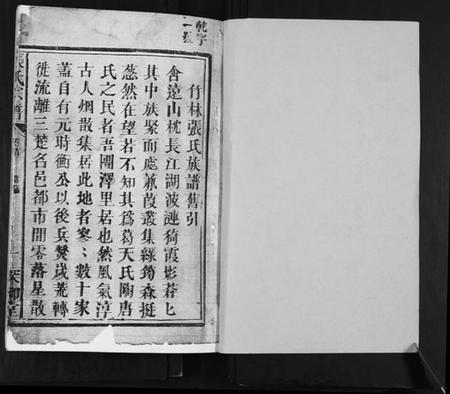 乾字
一號
竹林張氏族譜舊引
含遠山枕長江湖波漣猗霞影蒼匕
其中族聚而處蒹葭叢集綠筠森挺
悠然在望若不知其爲葛天氏陶唐
氏之民者吾團澤里居也然風氣淳
古人烟散集居此地者寥寥數十家
蓋自有元時衡公以後兵燹歲荒轉
徙流離三楚名邑都市開零落星散
張氏宗譜